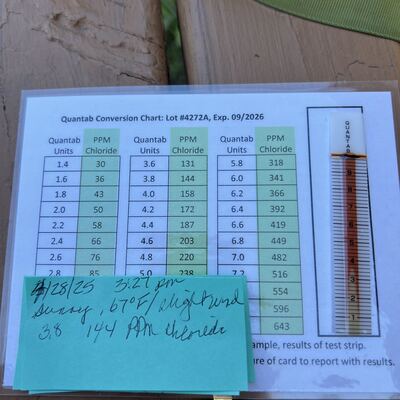 Quantab Conversion Chart: Lot #4272A, Exp. 09/2026
Quantab Units PPM Chloride Quantab Units PPM Chloride Quantab Units PPM Chloride
1.4 30 3.6 131 5.8 318
1.6 36 3.8 144 6.0 341
1.8 43 4.0 158 6.2 366
2.0 50 4.2 172 6.4 392
2.2 58 4.4 187 6.6 419
2.4 66 4.6 203 6.8 449
2.6 76 4.8 220 7.0 482
2.8 85 5.0 238 7.2 516
554
596
643
QUANTAB
9
8
7
6
5
4
3
2
1
4/28/25 3:27 pm
Sunny, 67°F/slight wind
3.8 144 PPM chloride
ample, results of test strip.
ure of card to report with results.